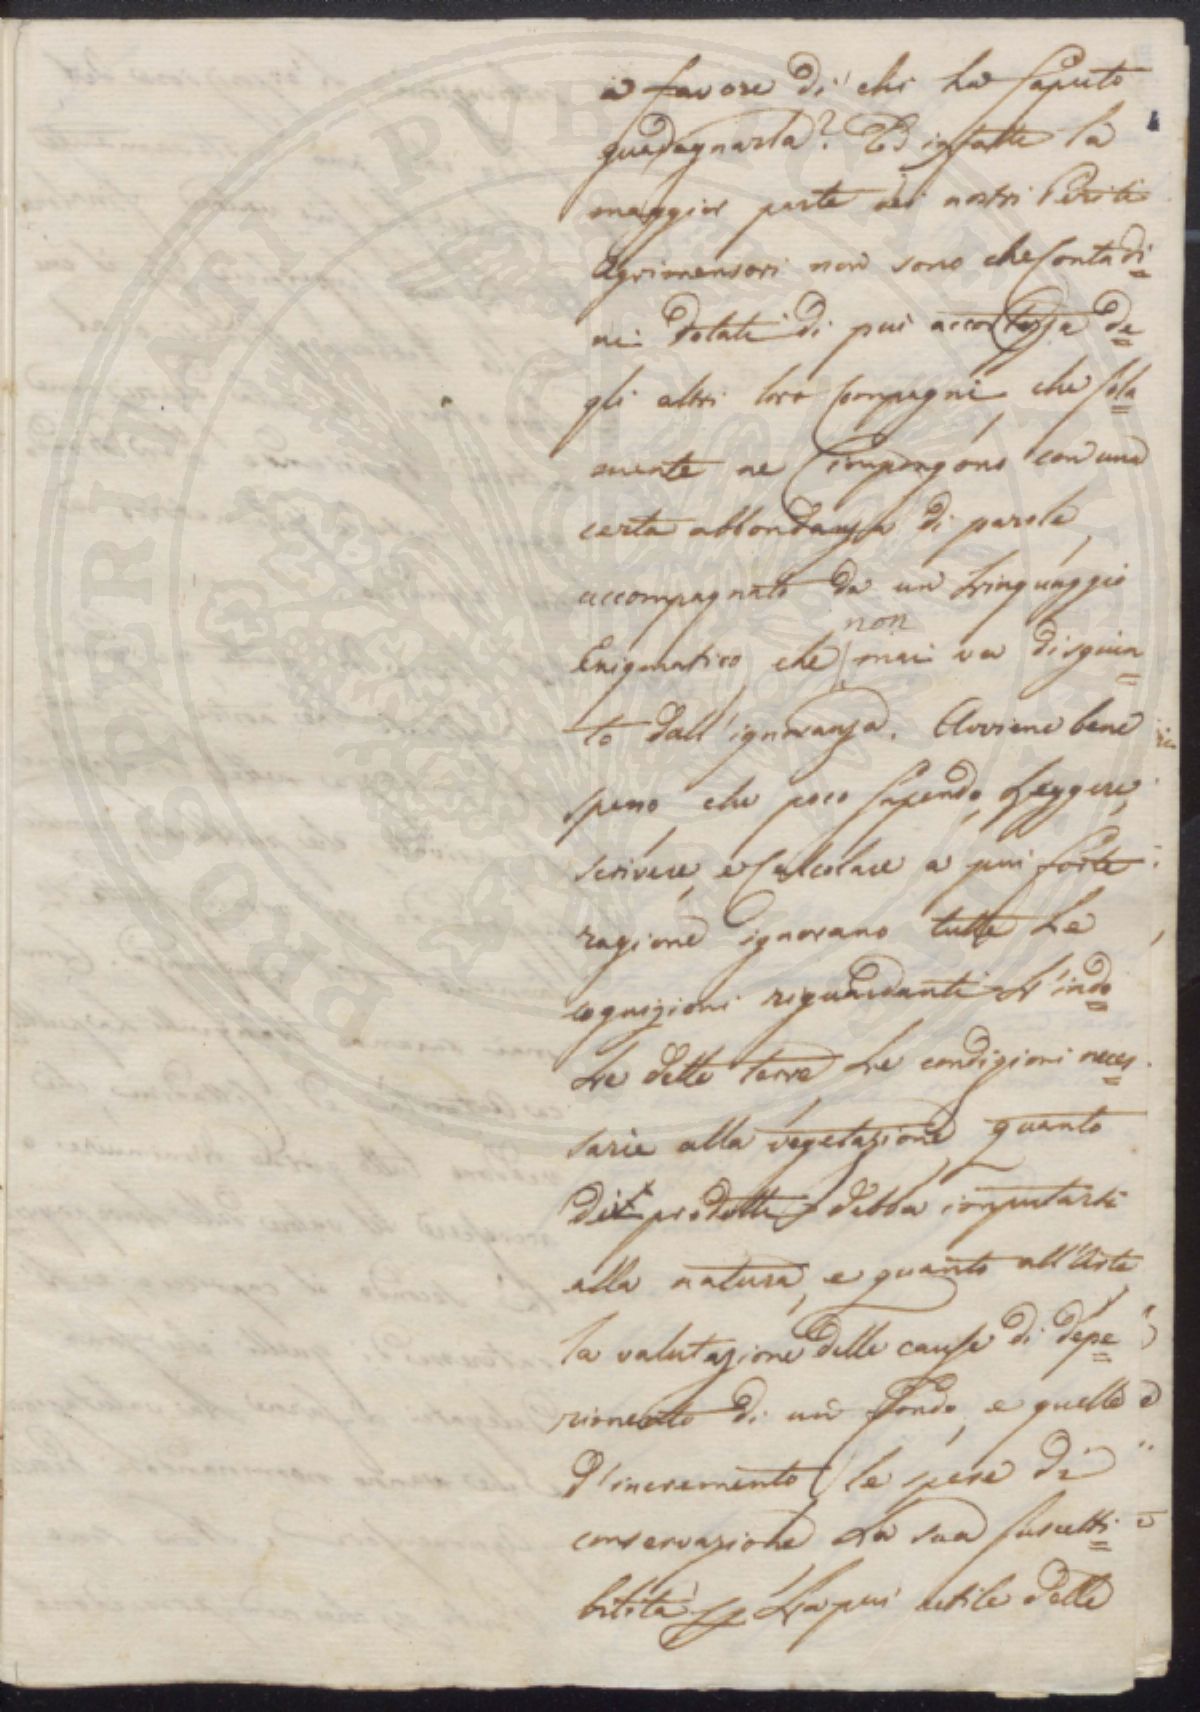 a favore di chi ha saputo
guadagnarla? Ed infatti la
maggior parte dei nostri Periti
Agrimensori non sono che Contadi=
ni dotati di più accortezza de=
gli altri loro Compagni, che sola=
mente ne impongono con una
certa abbondanza di parole,
accompagnato da un Linguaggio
Enigmatico, che non mai va disgiun=
to dall'ignoranza. Avviene bene
spesso che poco sapendo, Leggere,
scrivere, e Calcolare a più forte
ragione ignorano tutte Le
cognizioni riguardanti L'indo=
Le delle terre Le condizioni neces=
sarie alla vegetazione, quanto
di prodotti debba imputarsi
alla natura, e quanto all'Arte,
la valutazione delle cause di depe=
rimento di un Fondo, e quelle
d'incremento, le spese di
conservazione La sua suscetti=
bilità La più utile delle
PROSPERINATI PVBLICAE